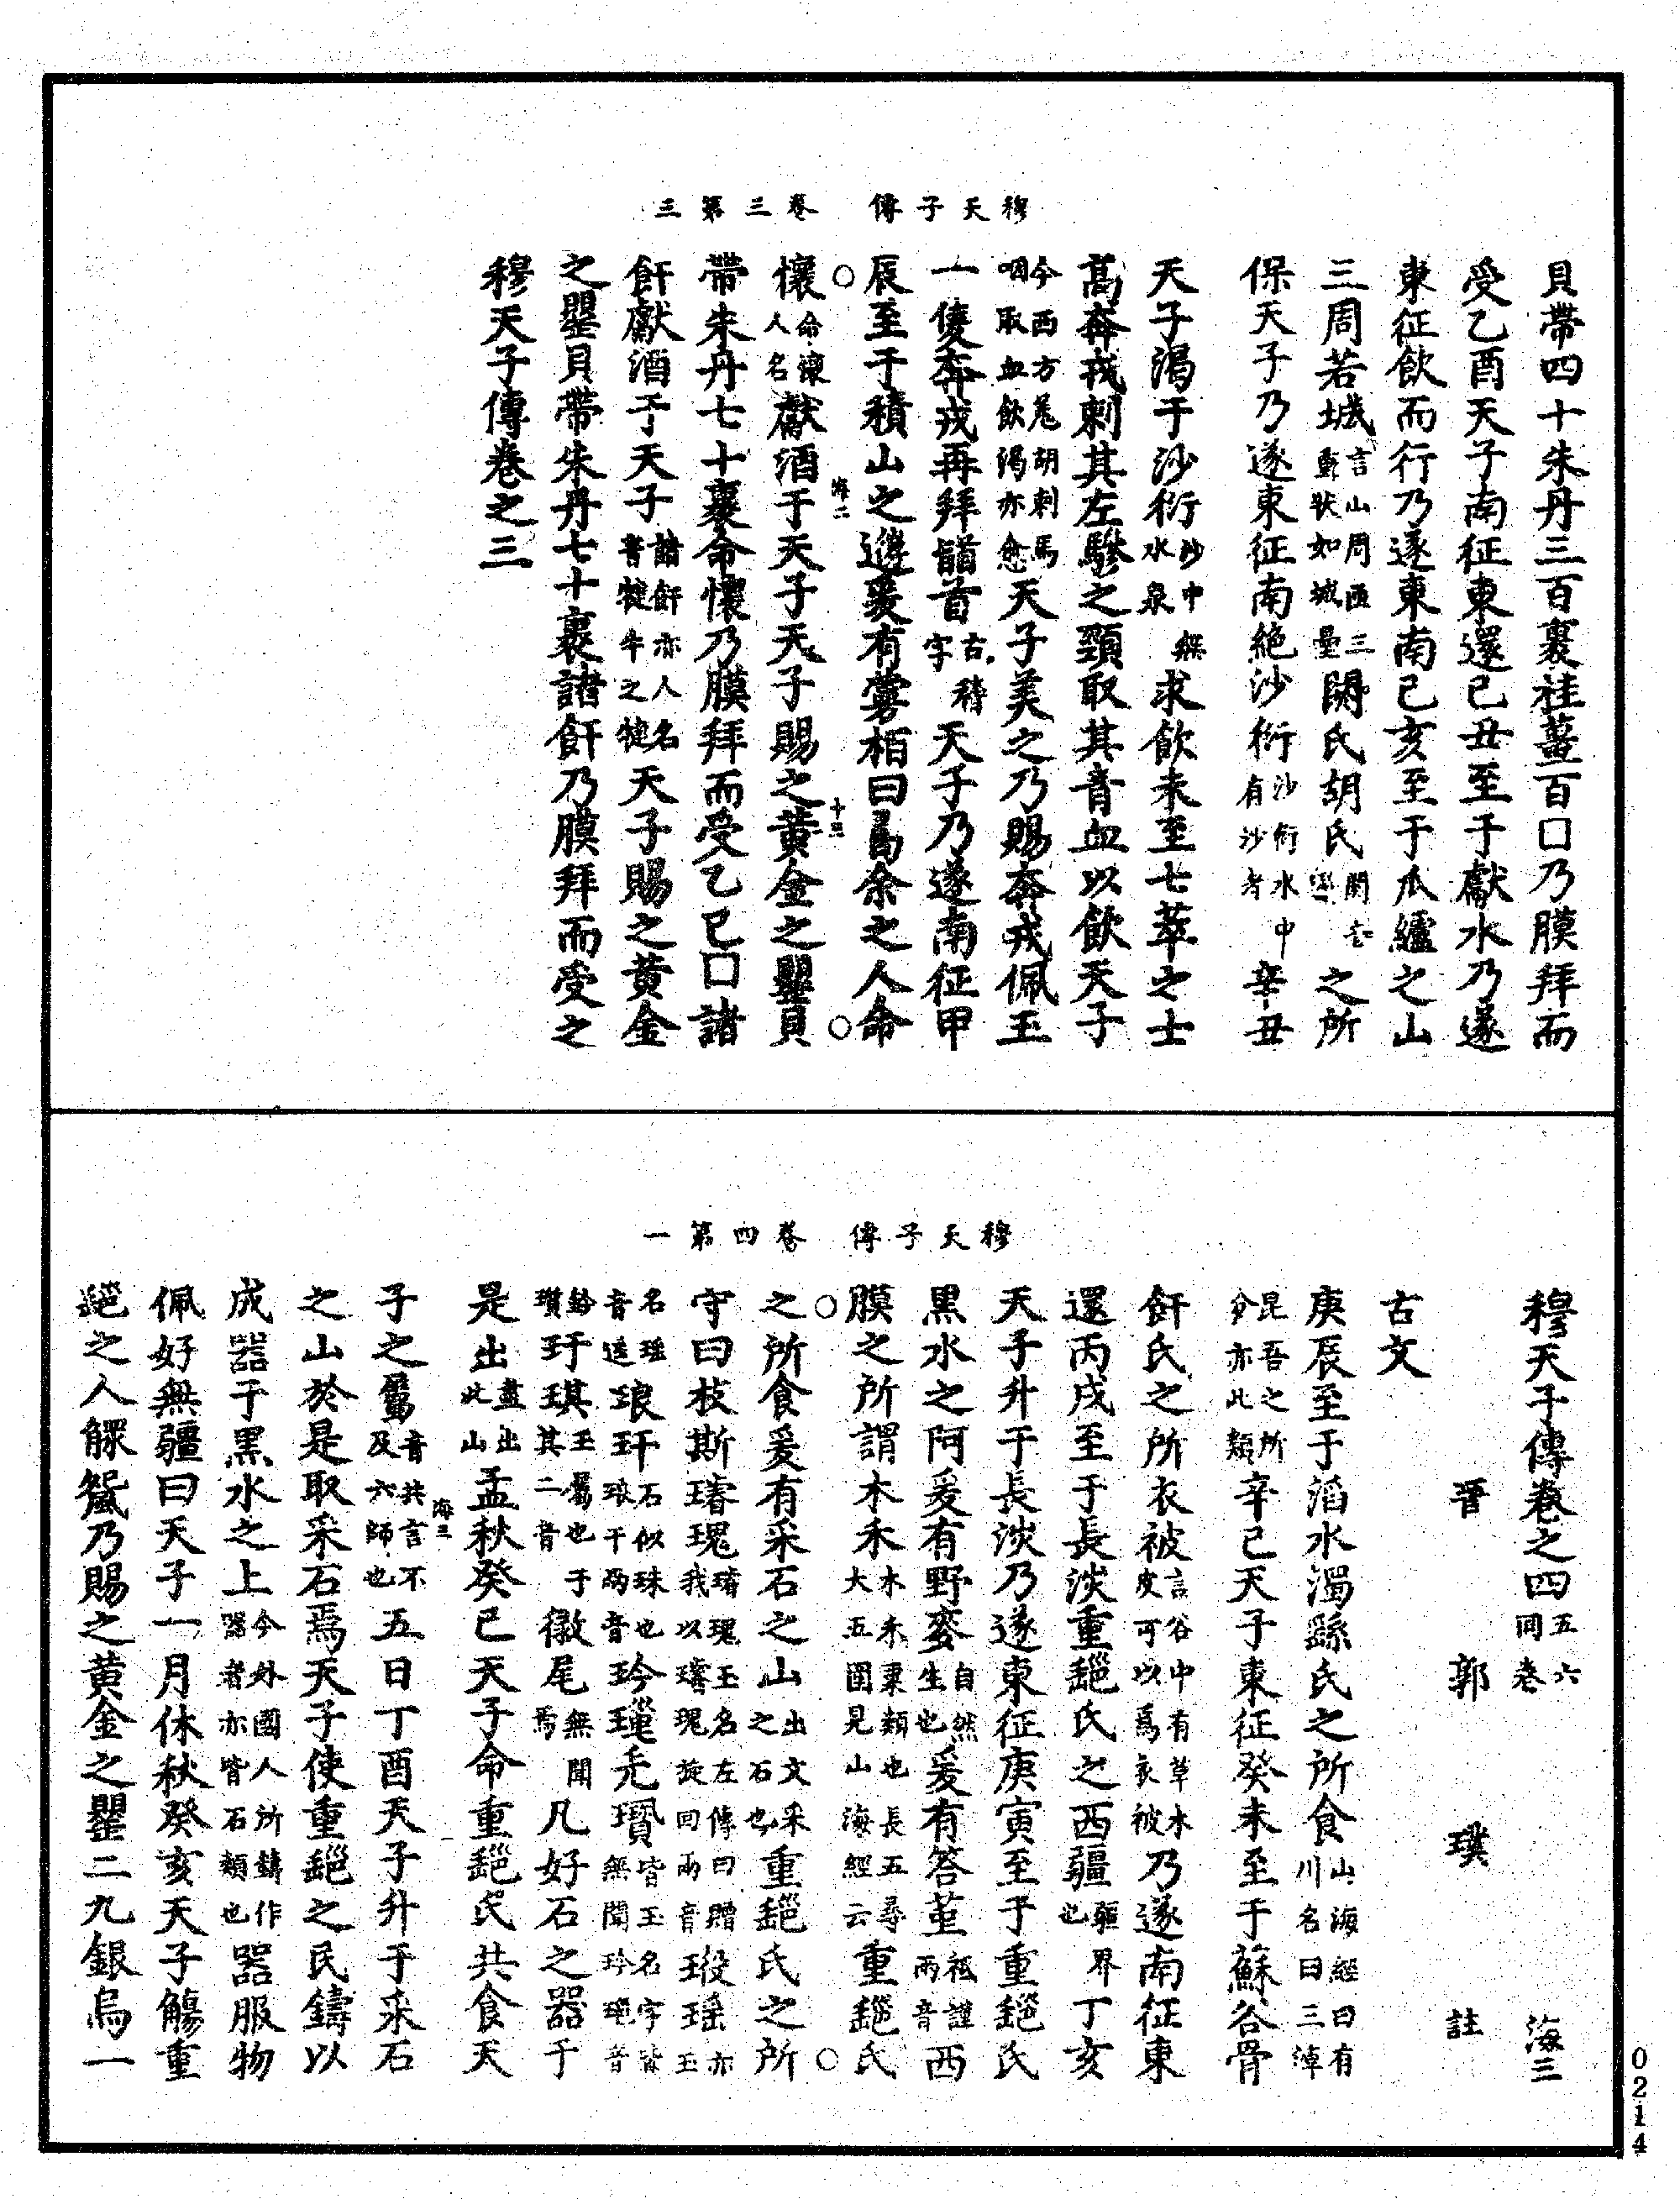 穆天子傳 卷三第三
貝帶四十朱丹三百裹桂薑百囗乃膜拜而
受乙酉天子南征東還己丑至于獻水乃遂
東征飲而行乃遂東南己亥至于瓜纑之山
三周若城言山周匝三重狀如城壘閼氏胡氏閼音之所
保天子乃遂東征南絶沙衍沙衍水中有沙者辛丑
天子渴于沙衍沙中無水泉求飲未至七萃之士
高奔戎刺其左驂之頸取其青血以飲天子
今西方羌胡刺馬咽取血飲渴亦愈天子美之乃賜奔戎佩玉
一隻奔戎再拜䭫首古稽字天子乃遂南征甲
辰至于積山之邊爰有蔓柏曰䍃余之人命
懷命懷人名獻酒于天子天子賜之黃金之罌貝
海二 十三
帶朱丹七十裹命懷乃膜拜而受乙巳囗諸
飦獻酒于天子諸飦亦人名書犍牛之犍天子賜之黃金
之罌貝帶朱丹七十裹諸飦乃膜拜而受之
穆天子傳卷之三
穆天子傳 卷四第一
穆天子傳卷之四五六同卷 海三
晉 郭 璞 註
古文
庚辰至于滔水濁繇氏之所食山海經曰有川名曰三淖
昆吾之所分亦此類辛巳天子東征癸未至于蘇谷骨
飦氏之所衣被言谷中有草木皮可以爲衣被乃遂南征東
還丙戌至于長淡重䣙氏之西疆疆界也丁亥
天子升于長淡乃遂東征庚寅至于重䣙氏
黑水之阿爰有野麥自然生也爰有荅堇祗謹兩音西
膜之所謂木禾木禾粟類也長五尋大五圍見山海經云重䣙氏
之所食爰有采石之山出文采之石也重䣙氏之所
守曰枝斯璿瑰璿瑰玉名左傳曰贈我以璿瑰旋回兩音㻛瑶亦玉
名瑶音遥琅玕石似珠也琅干兩音玪㻡㺬㻑皆玉名字皆無聞玪㻡音
鈴瓚玗琪玉屬也于其二音徽尾無聞焉凡好石之器于
是出盡出此山孟秋癸巳天子命重䣙氏共食天
海三
子之屬音共言不及六師也五日丁酉天子升于采石
之山於是取采石焉天子使重䣙之民鑄以
成器于黑水之上今外國人所鑄作器者亦皆石類也器服物
佩好無疆曰天子一月休秋癸亥天子觴重
䣙之人䱂䰇乃賜之黃金之罌二九銀烏一
0214